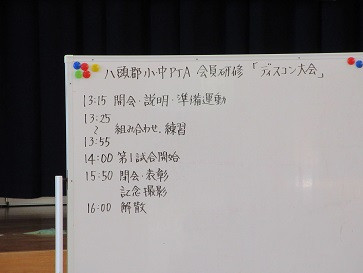 八頭郡小中PTA 会員研修「ディスコン大会」
13:15 開会・説明・準備運動
13:25
~ 組み合わせ、練習
13:55
14:00 第1試合開始
15:50 閉会・表彰
記念撮影
16:00 解散